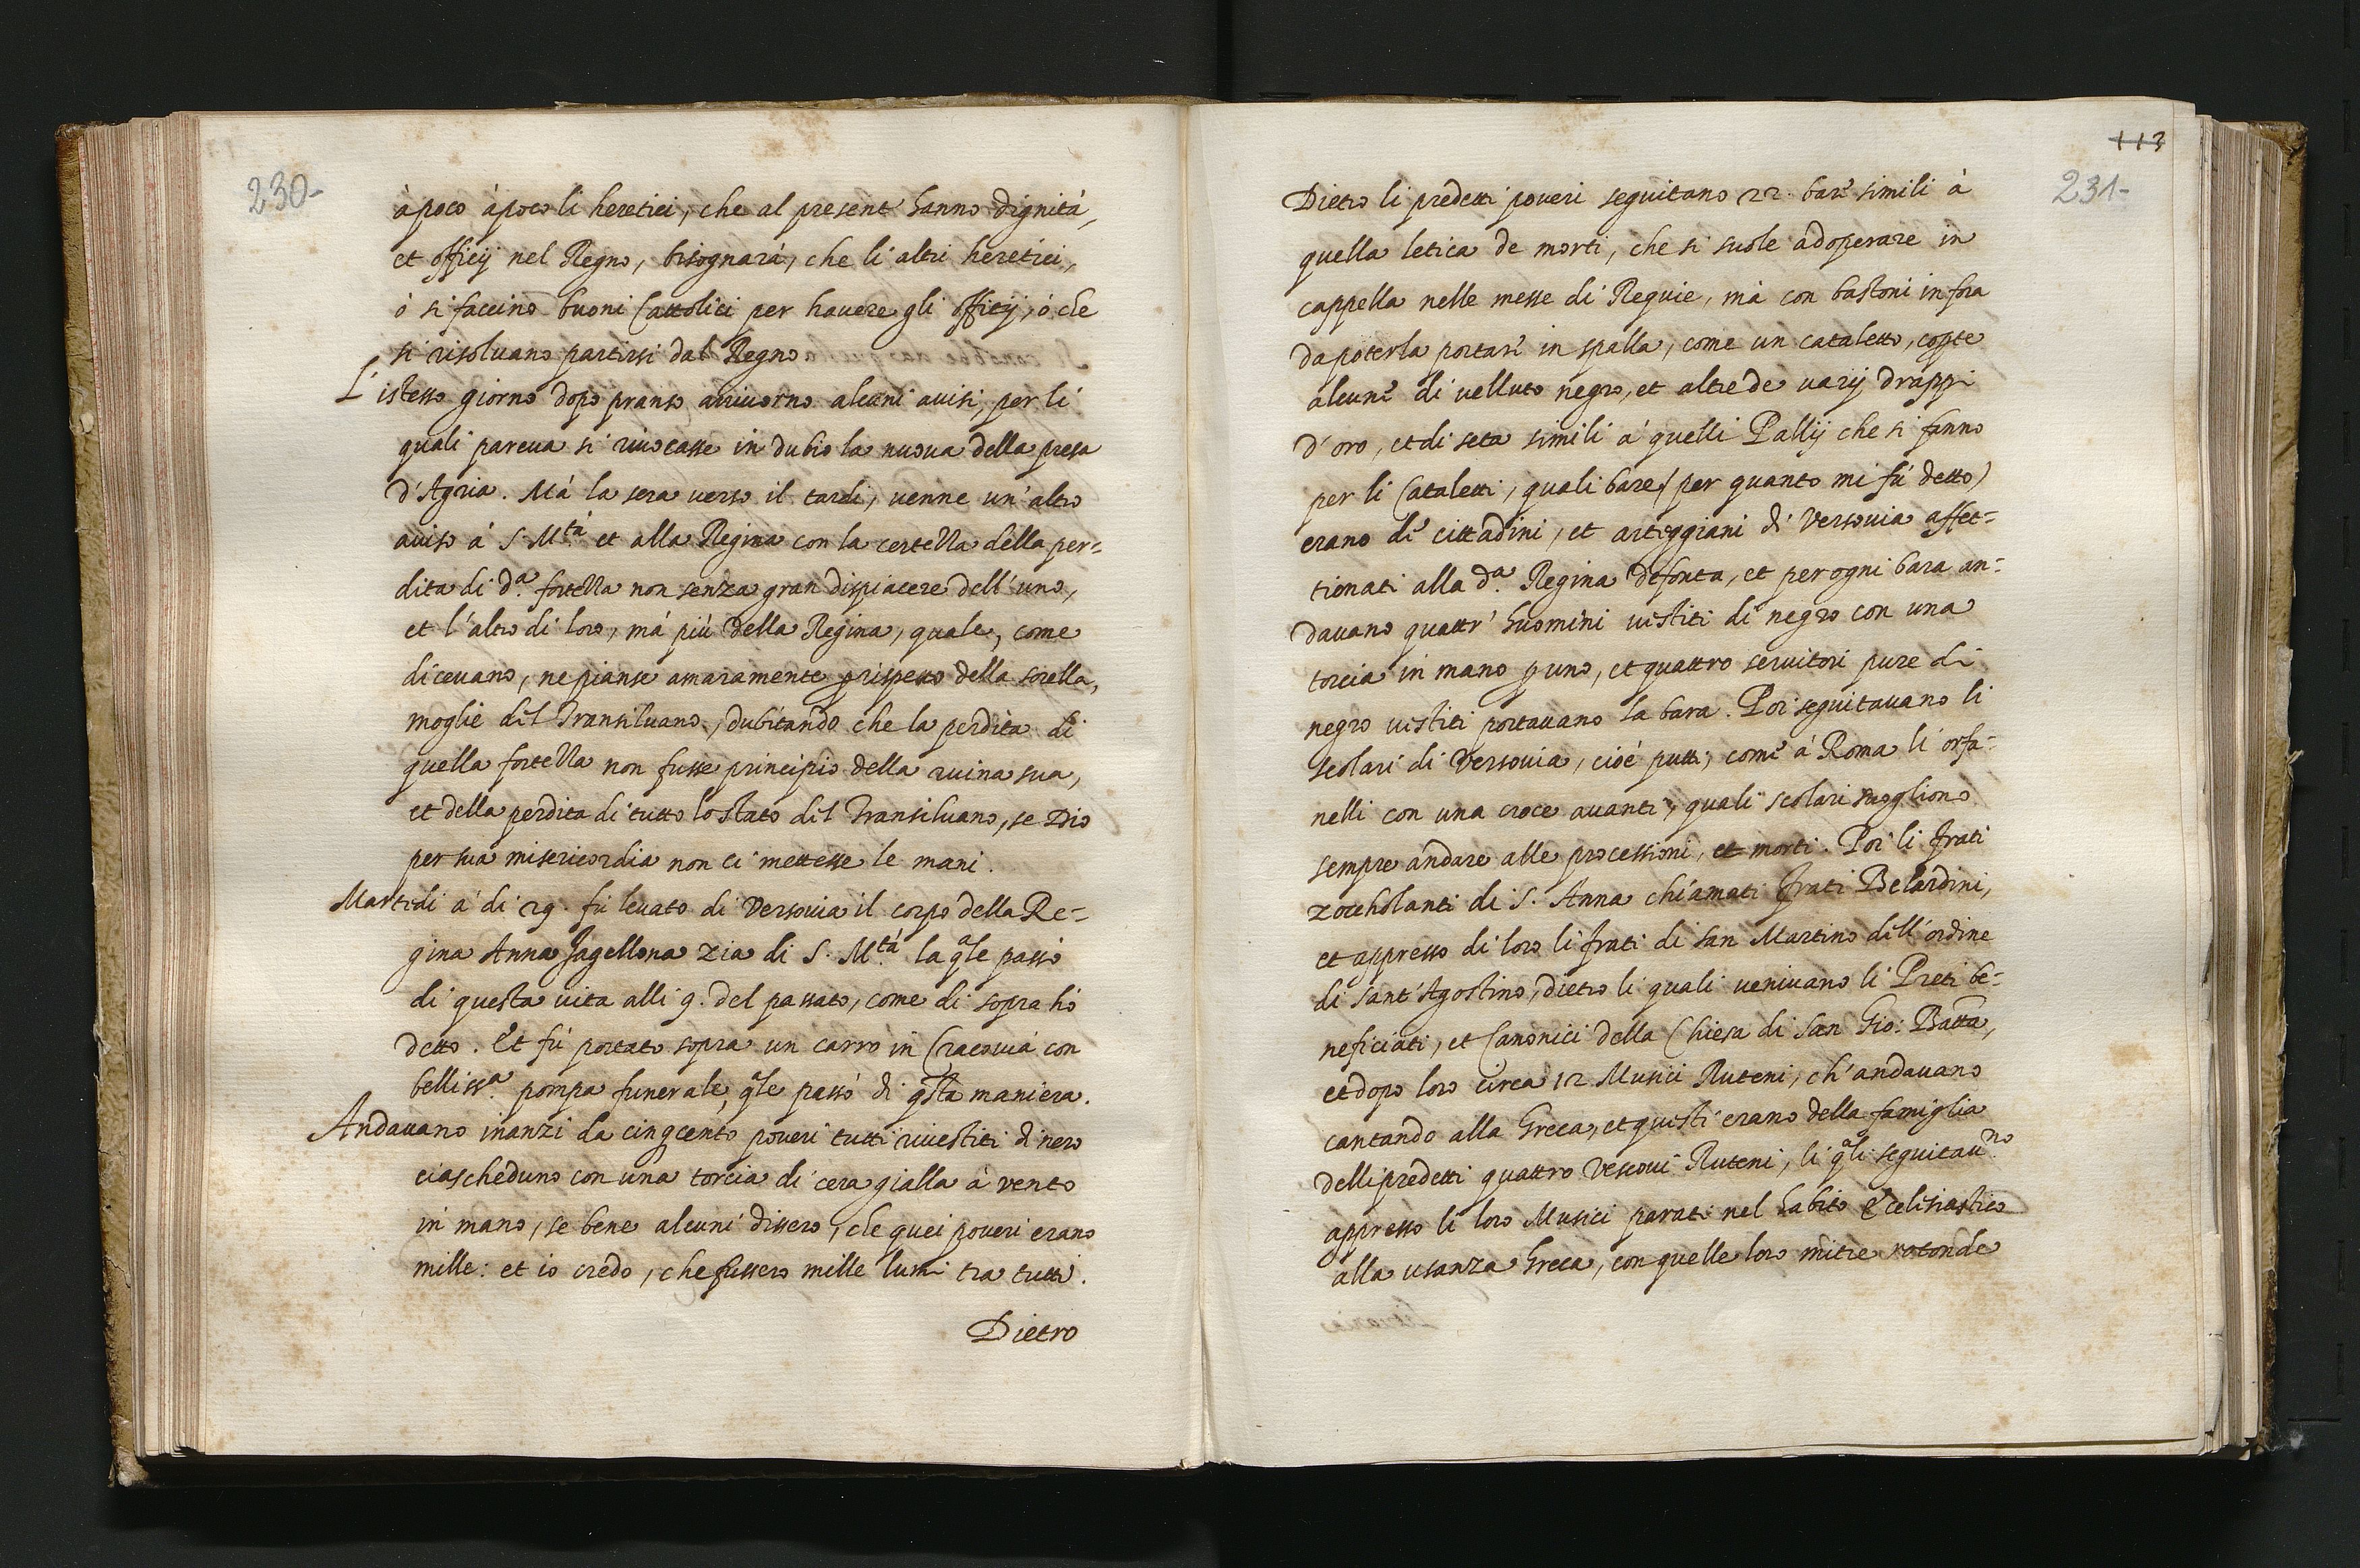 230-
à poco à poco li heretici, che al present' hanno dignità,
et officij nel Regno, bisognarà, che li altri heretici,
ò si faccino buoni Cattolici per hauere gli officij, ò che
si risoluano partirsi dal Regno
L'istesso giorno dopo pranso arriuorno alcuni auisi, per li
quali pareua si riuocasse in dubio la nuoua della presa
d'Agria. Mà la sera uerso il tardi, uenne un'altro
auiso à S. M.tà et alla Regina con la certezza della per=
dita di d.a fortezza non senza gran dispiacere dell'uno,
et l'altro di loro, mà più della Regina, quale, come
diceuano, ne pianse amaramente p rispetto della sorella,
moglie del Transiluano, dubitando che la perdita di
quella fortezza non fusse principio della ruina sua,
et della perdita di tutto lo stato del Transiluano, se Dio
per sua misericordia non ci mettesse le mani.
Martedi à di 29. fu leuato di Versouia il corpo della Re=
gina Anna Jagellona zia di S. M.tà la qle passò
di questa uita alli 9. del passato, come di sopra hò
detto. Et fù portato sopra un carro in Cracouia con
belliss.a pompa funerale, qle passò di qsta maniera.
Andauano inanzi da cinqcento poueri tutti riuestiti di nero
ciascheduno con una torcia di cera gialla à vento
in mano, se bene alcuni dissero, che quei poueri erano
mille: et io credo, che fussero mille lumi tra tutti.
Dietro
113
231-
Dietro li predetti poueri seguitano 22. bare simili à
quella letica de morti, che si suole adoperare in
cappella nelle messe di Requie, mà con bastoni in fora
da poterla portare in spalla, come un cataletto, copte
alcune di uelluto negro, et altre de uarij drappi
d'oro, et di seta simili à quelli Pallij che si fanno
per li Cataletti, quali bare (per quanto mi fù detto)
erano de cittadini, et arteggiani di Versouia affet=
tionati alla d.a Regina defonta, et per ogni bara an=
dauano quattr' huomini uestiti di negro con una
torcia in mano p uno, et quattro seruitori pure di
negro uestiti portauano la bara. Poi seguitauano li
scolari di Versouia, cioè putti, come à Roma li orfa=
nelli con una croce auanti, quali scolari sogliono
sempre andare alle processioni, et morti. Poi li frati
zoccholanti di S. Anna chiamati frati Belardini,
et appresso di loro li frati di san Martino dell'ordine
di sant'Agostino, dietro li quali ueniuano li Preti be=
neficiati, et Canonici della Chiesa di San Gio: Batta,
et dopo loro circa 12 Musici Ruteni, ch'andauano
cantando alla Greca, et questi erano della famiglia
delli predetti quattro Vescoui Ruteni, li qli seguitau.no
appresso li loro Musici parati nel habito Ecclesiastico
alla usanza Greca, con quelle loro mitre rotonde